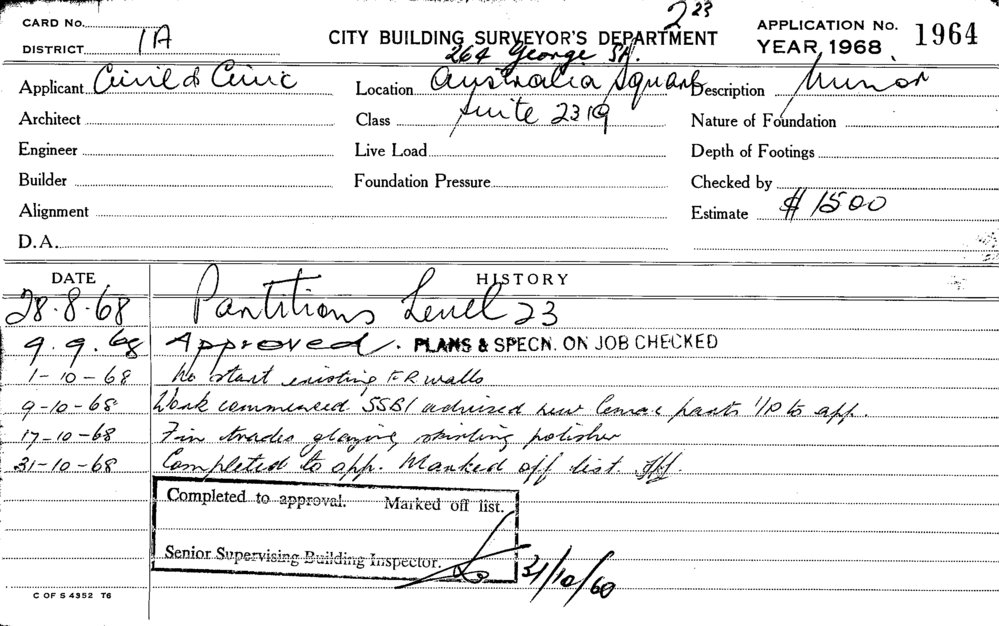 223
CARD No.
DISTRICT 1A
CITY BUILDING SURVEYOR'S DEPARTMENT
APPLICATION No. 1964
YEAR, 1968
264 George St.
Applicant Civil & Civic
Location Australia Square
Description Minor
Architect
Class Suite 2319
Nature of Foundation
Engineer
Live Load
Depth of Footings
Builder
Foundation Pressure
Checked by
Alignment
Estimate $ 1500
D.A.
DATE HISTORY
28.8.68 Partitions Level 23
9.9.68 Approved. PLANS & SPECN. ON JOB CHECKED
1-10-68 No start existing F R walls
9-10-68 Work commenced SSBI advised new parts I/P to app.
17-10-68 Fin trades glazing, skirting polisher
31-10-68 Completed to app. Marked off list.
Completed to approval. Marked off list.
Senior Supervising Building Inspector.
31/10/68
C OF S 4352 T6